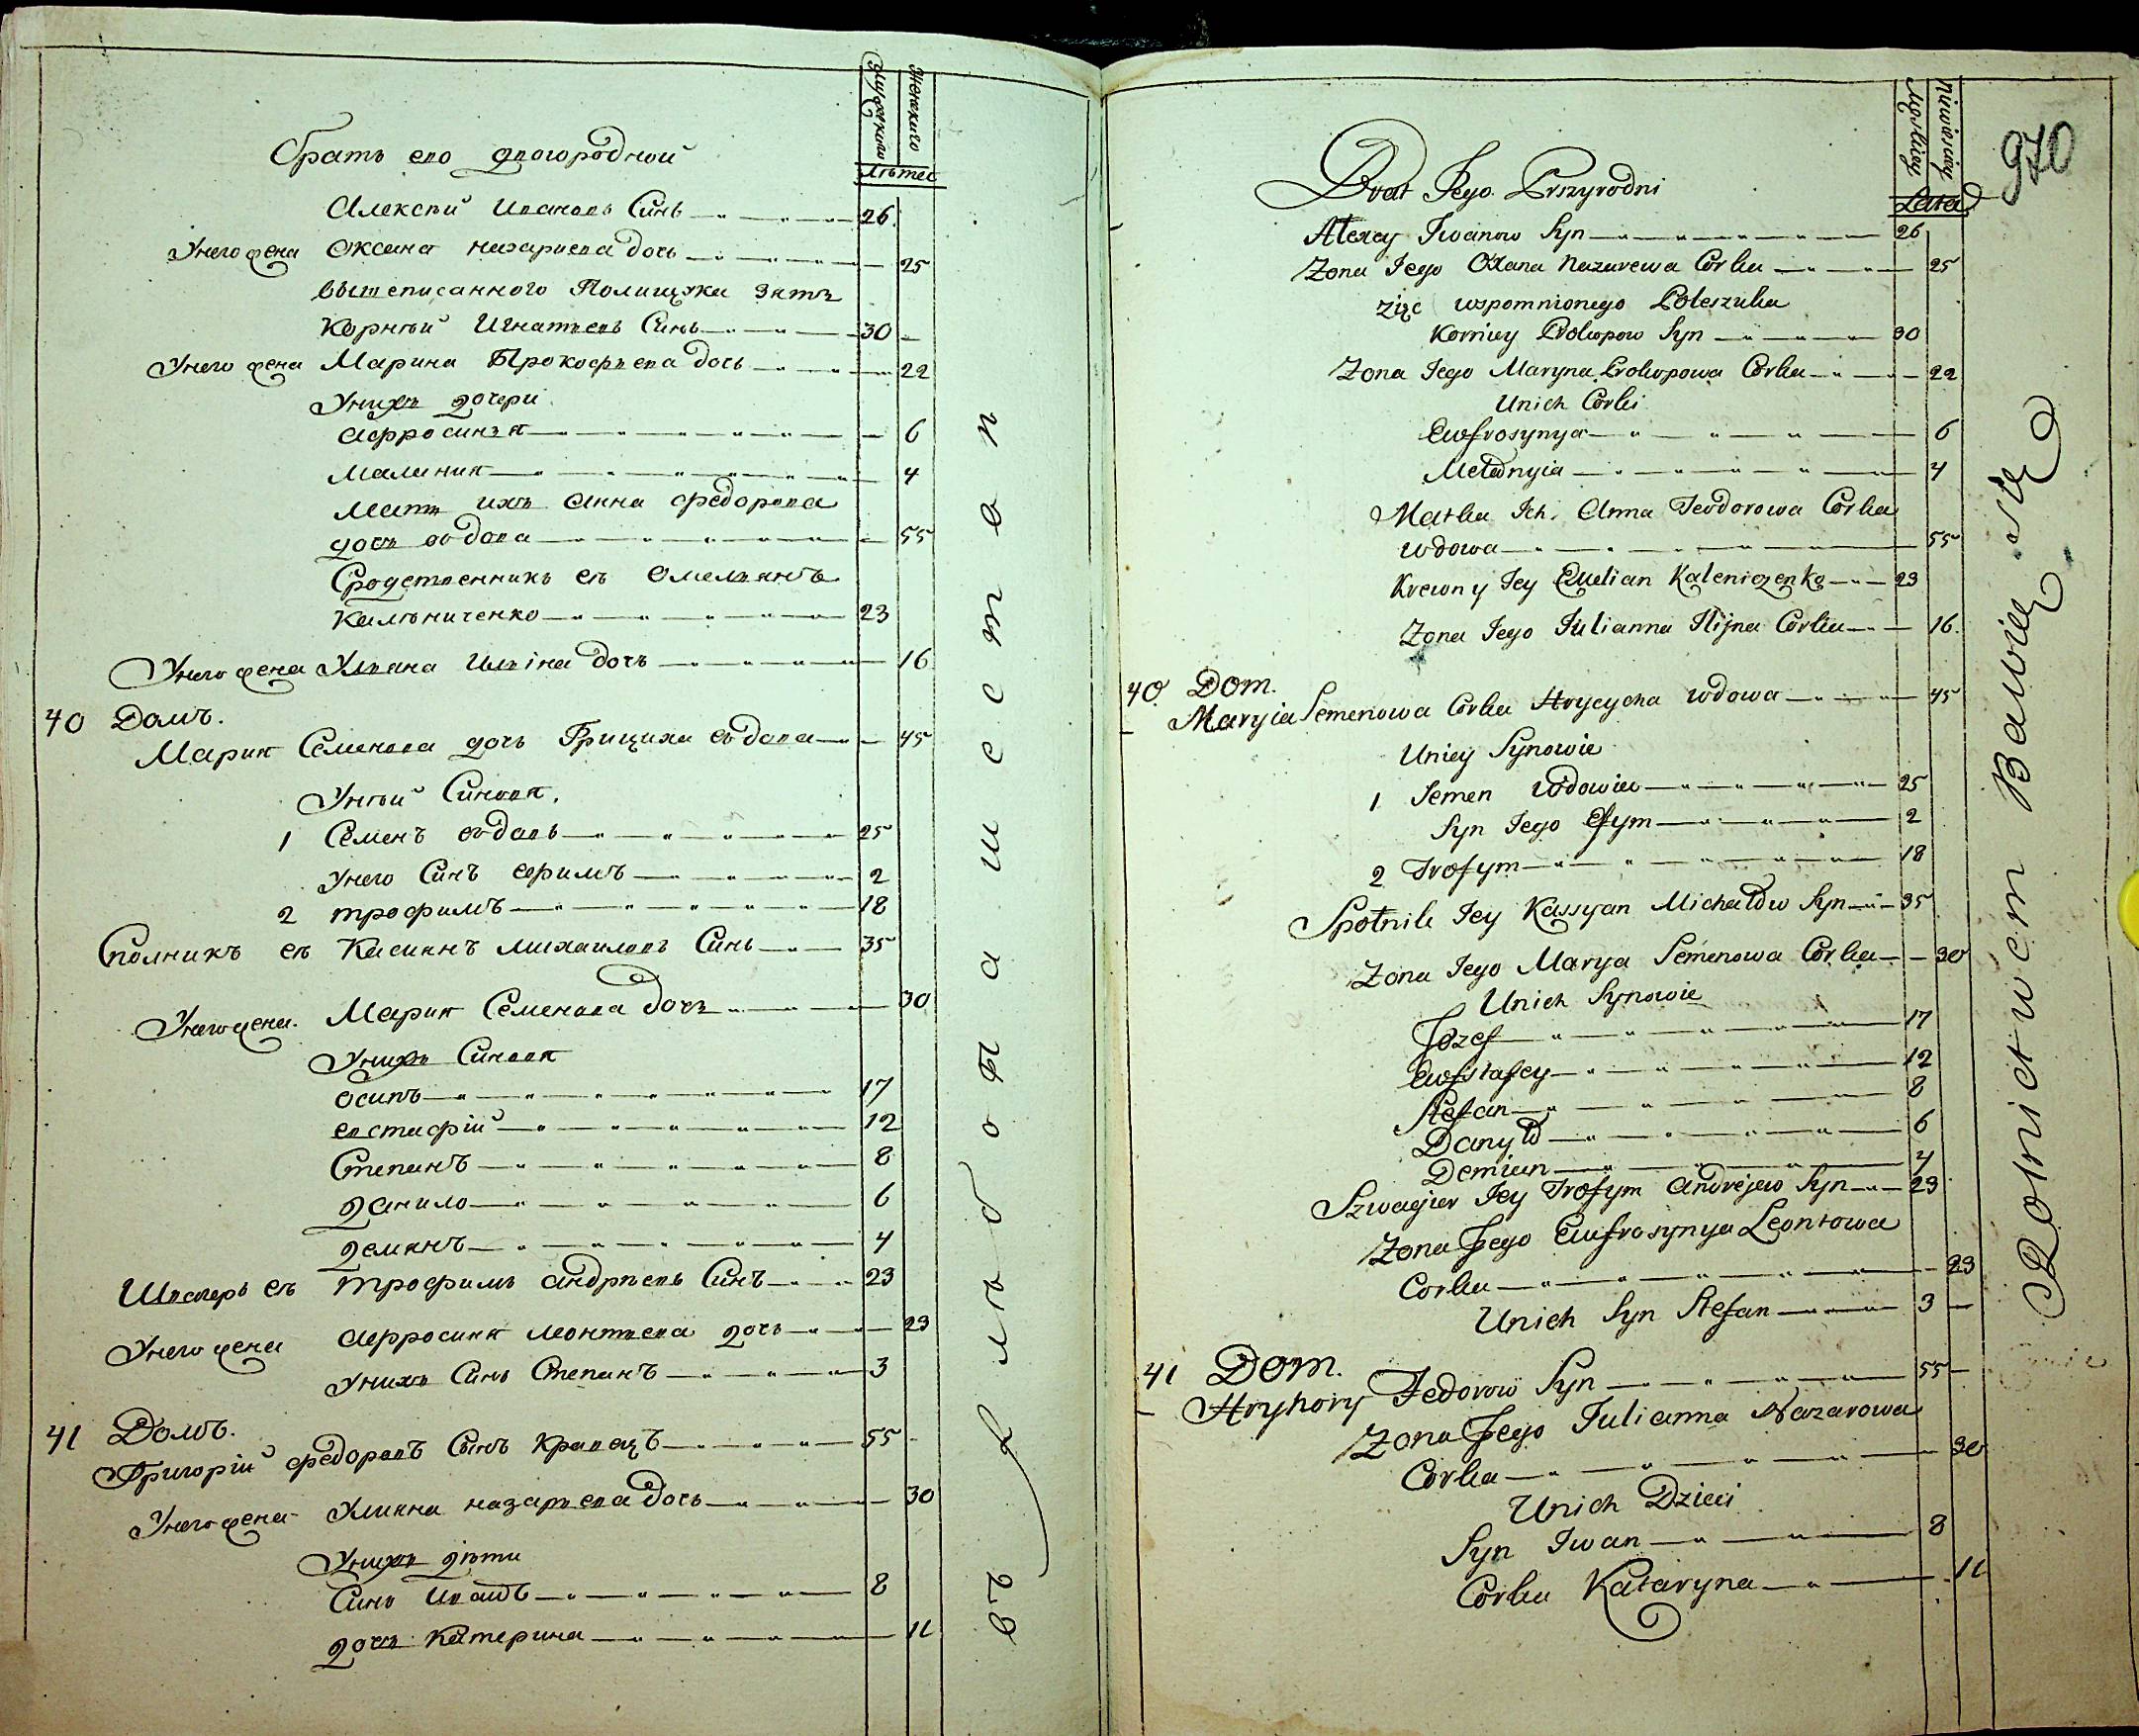 Мужескаго
Женскаго
Лѣтес
братъ его двоюродный
Алексѣй Ивановъ Синъ 26
У него жена Оксана назарьева дочь 25
вышеписанного Полищука зять
Корнѣй Игнатьевъ Синъ 30
У него жена Марина Прокофьева дочь 22
У нихъ дочери
Афросинья 6
Малания 4
Мать ихъ Анна федорова
дочь вдова 55
Сродственникъ еѣ Омельянъ
Кальниченко 23
У него жена Ульяна Ильіна дочь 16
40 Домъ.
Мария Семенова дочь Грициха вдова 45
У нѣй Синовя
1 Семенъ вдовъ 25
У него Синъ ефимъ 2
2 трофимъ 18
Сполникъ еѣ Касиянъ михаиловъ Синъ 35
У него жена Мария Семенова дочь 30
У нихъ Синовя
осипъ 17
евстафій 12
Степанъ 8
данило 6
демянъ 4
Швагеръ еѣ трофимъ андрѣевъ Синъ 23
У него жена афросиня леонтьева дочь 23
У нихъ Синъ Степанъ 3
41 Домъ.
Григорій федоровъ Синъ кравецъ 55
У него жена Улияна назарьева дочь 30
У нихъ дѣти
Синъ Иванъ 8
дочь Катерина 11
въ хлѣбопашестве
970
Męskiey
Niewiesciey
Lata
Brat Jego Przyrodni
Alexey Iwanow Syn 26
Zona Jego Oxana Nazarewa Corka 25
zięc wspomnionego Poleszuka
Korniey Prokopow Syn 30
Zona Jego Maryna Prokopowa Corka 22
Unich Corki
Ewfrosynya 6
Mełanyia 4
Matka Ich. Anna Teodorowa Corka
wdowa 55
Krewny Jey Emelian Kaleniczenko 23
Zona Jego Julianna Ilijna Corka 16.
40 Dom.
Maryia Semenowa Corka Hrycycha wdowa 45
Uniey Synowie
1 Semen Wdowiec 25
Syn Jego Efym 2
2 Trofym 18
Społnik Jey Kassyan Michałow Syn 35
Zona Jego Marya Semenowa Corka 30
Unich Synowie
Jozef 17
Ewfstafey 12
Stefan 8
Danyło 6
Demian 4
Szwagier Jey Trofym Andrejew Syn 23
Zona Jego Ewfrosynya Leontowa
Corka 23
Unich Syn Stefan 3
41 Dom.
Hryhory Fedorow Syn 55
Zona Jego Julianna Nazarowa
Corka 30
Unich Dzieci
Syn Iwan 8
Corka Kataryna 11
Rolnictwem Bawiey się